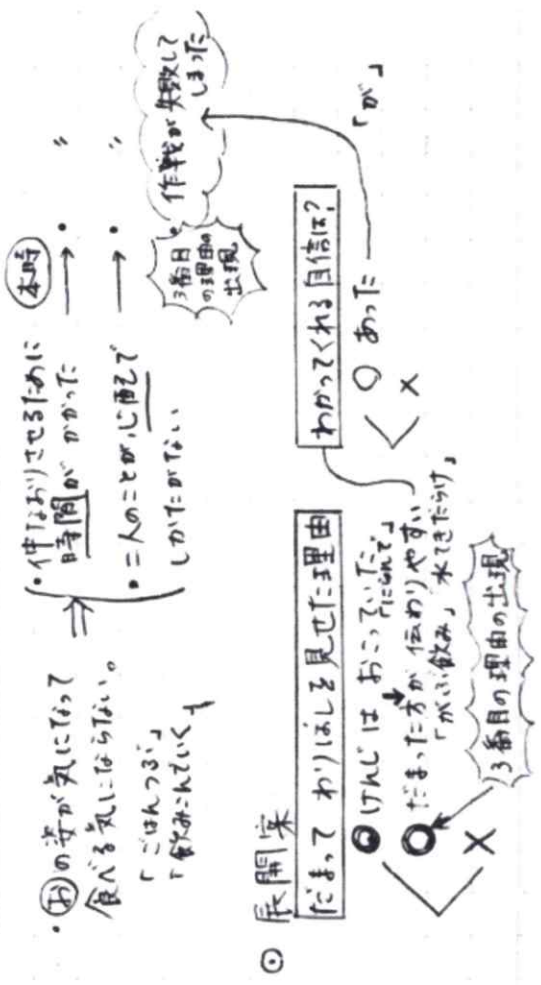 ・おの姿が気になって
食べる気にならない。
「ごはんつぶ」
「飲みこんでいく」
⇒
・仲なおりさせるために
時間がかかった
・二人のことが心配で
しかたがない
本時
→ ・ 〃
→ ・ 〃
・3番目
の理由の
出現
作戦が失敗して
しまった
◎ 展開案
だまって わりばしを見せた理由
● けんじは おこっていた。
「にらんで」
◎ だまった方が伝わりやすい
「がぶ飲み」水できたらけ」
×
3番目の理由の出現
わかってくれる自信は?
○ あった
×
「が」